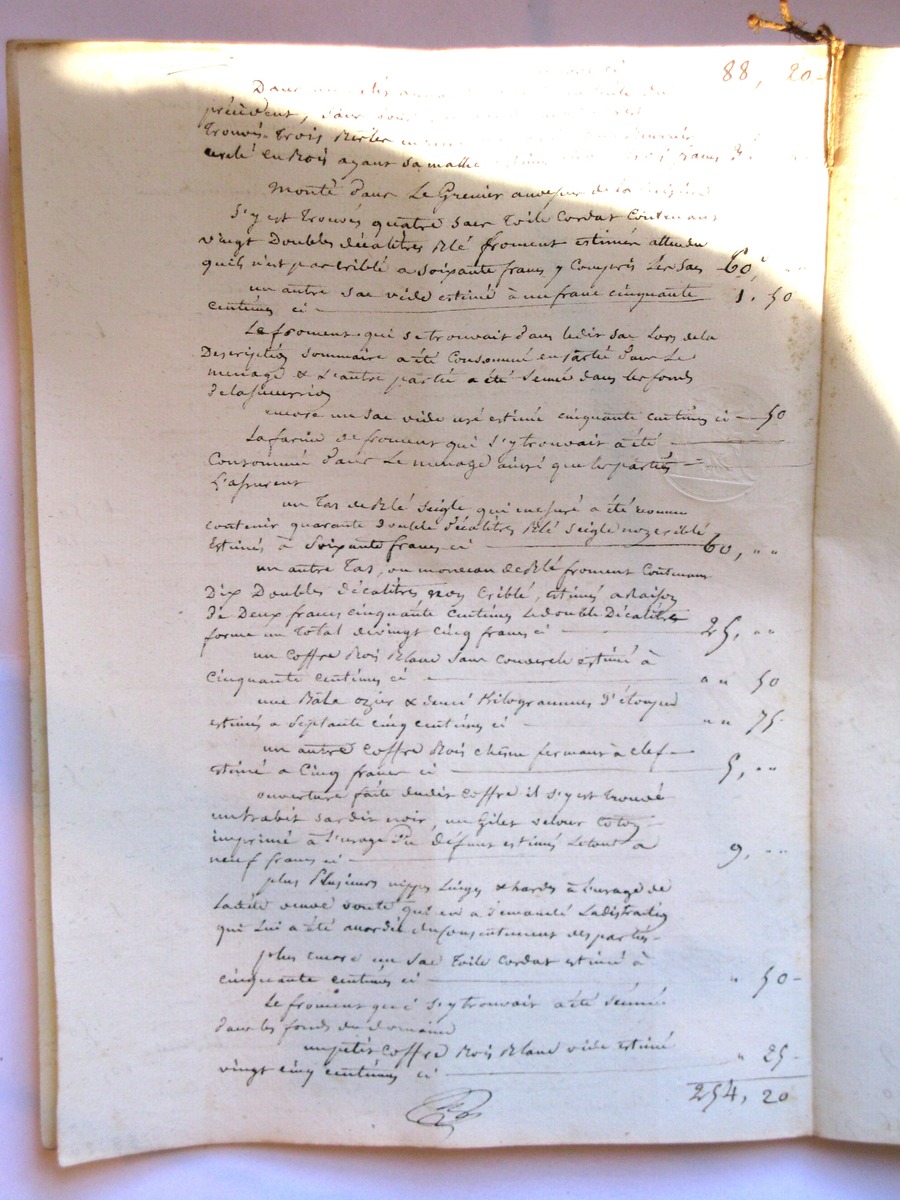 88, 20
Dans un
précédent,
trouvés trois
cerclé en Bois ayant sa
Monté dans Le Grenier audessus de la Cuisine
S'y est trouvés quatre sacs toile Cordat Contenans
vingt Doubles décalitres Blé froment estimés attendu
quils n'est pas criblé a soixante francs y Compris les sacs 60, "
un autre sac vide estimé à un franc cinquante
centimes ci 1. 50
Le froment qui se trouvait dans ledit sac Lors de la
Description Sommaire a été Consommé en partie dans Le
menage & L'autre partie a été Semé dans les fonds
de la succession
encore un Sac vide usé estimé cinquante centimes ci 50
La farine de froment qui s'y trouvait a été
Consommée dans Le menage ainsi que les parties
L'assurent
un Tas de Blé Seigle qui mesuré a été reconnu
contenir quarante double décalitres Blé Seigle non criblé
Estimés à Soixante francs ci 60, " "
un autre Tas, ou monceau de Blé froment Contenans
Dix Doubles décalitres non Criblé, estimés a Raison
de Deux francs cinquante Centimes Le double Décalitre
forme un Total de vingt cinq francs ci 25, " "
un Coffre Bois Blanc Sans couvercle estimé à
Cinquante centimes ci " " 50
une ozier & demi Kilogrammes d'étoupes
estimés a Septante cinq centimes ci " " 75
un autre Coffre Bois chêne fermant à clef
estimé a Cinq francs ci 5, " "
ouverture faite dudit Coffre il s'y est trouvé
un habit sardis noir, un Gilet velour Coton
imprimé à L'usage du défunt estimés Le tout a
neuf francs ci 9, " "
plus Plusieurs nippes Linges & hardes à L'usage de
Ladite veuve qui en a demandé La distraction
qui Lui a été accordée du Consentement des parties
plus encore un Sac Toile Cordat estimé à
cinquante centimes ci " 50
Le froment qui s'y trouvait a été Semé
dans les fonds du domaine
un petit Coffre Bois Blanc vide estimé
vingt cinq centimes ci " 25
254, 20